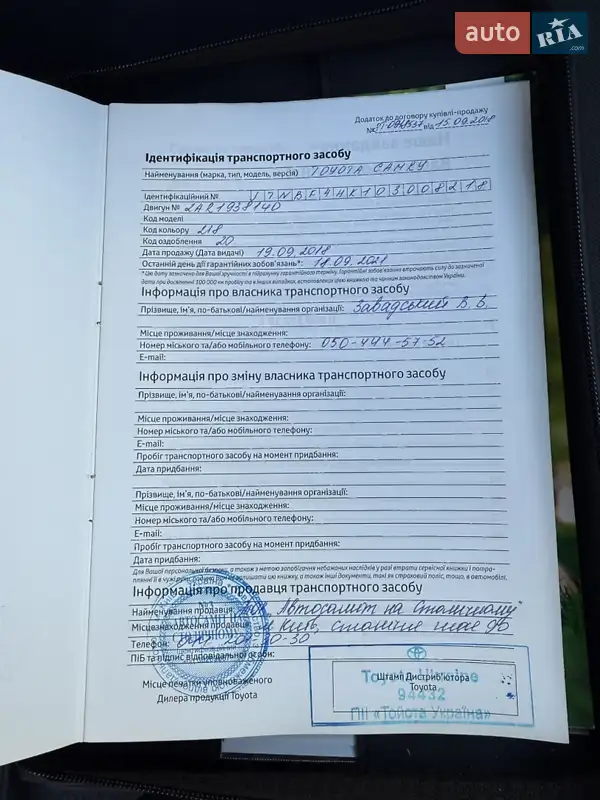 auto RIA .com
Додаток до договору купівлі-продажу
№ від 15.09.2018
Ідентифікація транспортного засобу
Найменування (марка, тип, модель, версія) TOYOTA CAMRY
Ідентифікаційний №
Двигун № 2AR1938140
Код моделі
Код кольору 218
Код оздоблення 20
Дата продажу (Дата видачі) 19.09.2018
Останній день дії гарантійних зобов'язань*: 18.09.2021
* Цю дату зазначено для Вашої зручності в підрахунку гарантійного терміну. Гарантійні зобов'язання втрачають силу до зазначеної
дати при досягненні 100 000 км пробігу та в інших випадках, встановлених цією книжкою та законодавством України.
Інформація про власника транспортного засобу
Прізвище, ім'я, по-батькові/найменування організації: Завадський В. В.
Місце проживання/місце знаходження:
Номер міського та/або мобільного телефону: 050-444-57-52
E-mail:
Інформація про зміну власника транспортного засобу
Прізвище, ім'я, по-батькові/найменування організації:
Місце проживання/місце знаходження:
Номер міського та/або мобільного телефону:
E-mail:
Пробіг транспортного засобу на момент придбання:
Дата придбання:
Прізвище, ім'я, по-батькові/найменування організації:
Місце проживання/місце знаходження:
Номер міського та/або мобільного телефону:
E-mail:
Пробіг транспортного засобу на момент придбання:
Дата придбання:
Для Вашої персональної безпеки, а також з метою запобігання небажаних наслідків у разі втрати сервісної книжки і потрап-
лянні її в чужі руки, радимо Вам не залишати цю книжку, а також інші документи, такі як страховий поліс, тощо, в автомобілі.
Інформація про продавця транспортного засобу
Найменування продавця: "Автосаміт на Столичному"
Місцезнаходження продавця: м. Київ, Столичне шосе
Телефон:
ПІБ та підпис відповідальної особи:
Місце печатки уповноваженого
Дилера продукції Toyota
Штамп Дистриб'ютора
Toyota
Toyota Ukraine
94432
ПІІ «Тойота Україна»
Україна
№3
АВТОСАМІТ НА
СТОЛИЧНОМУ